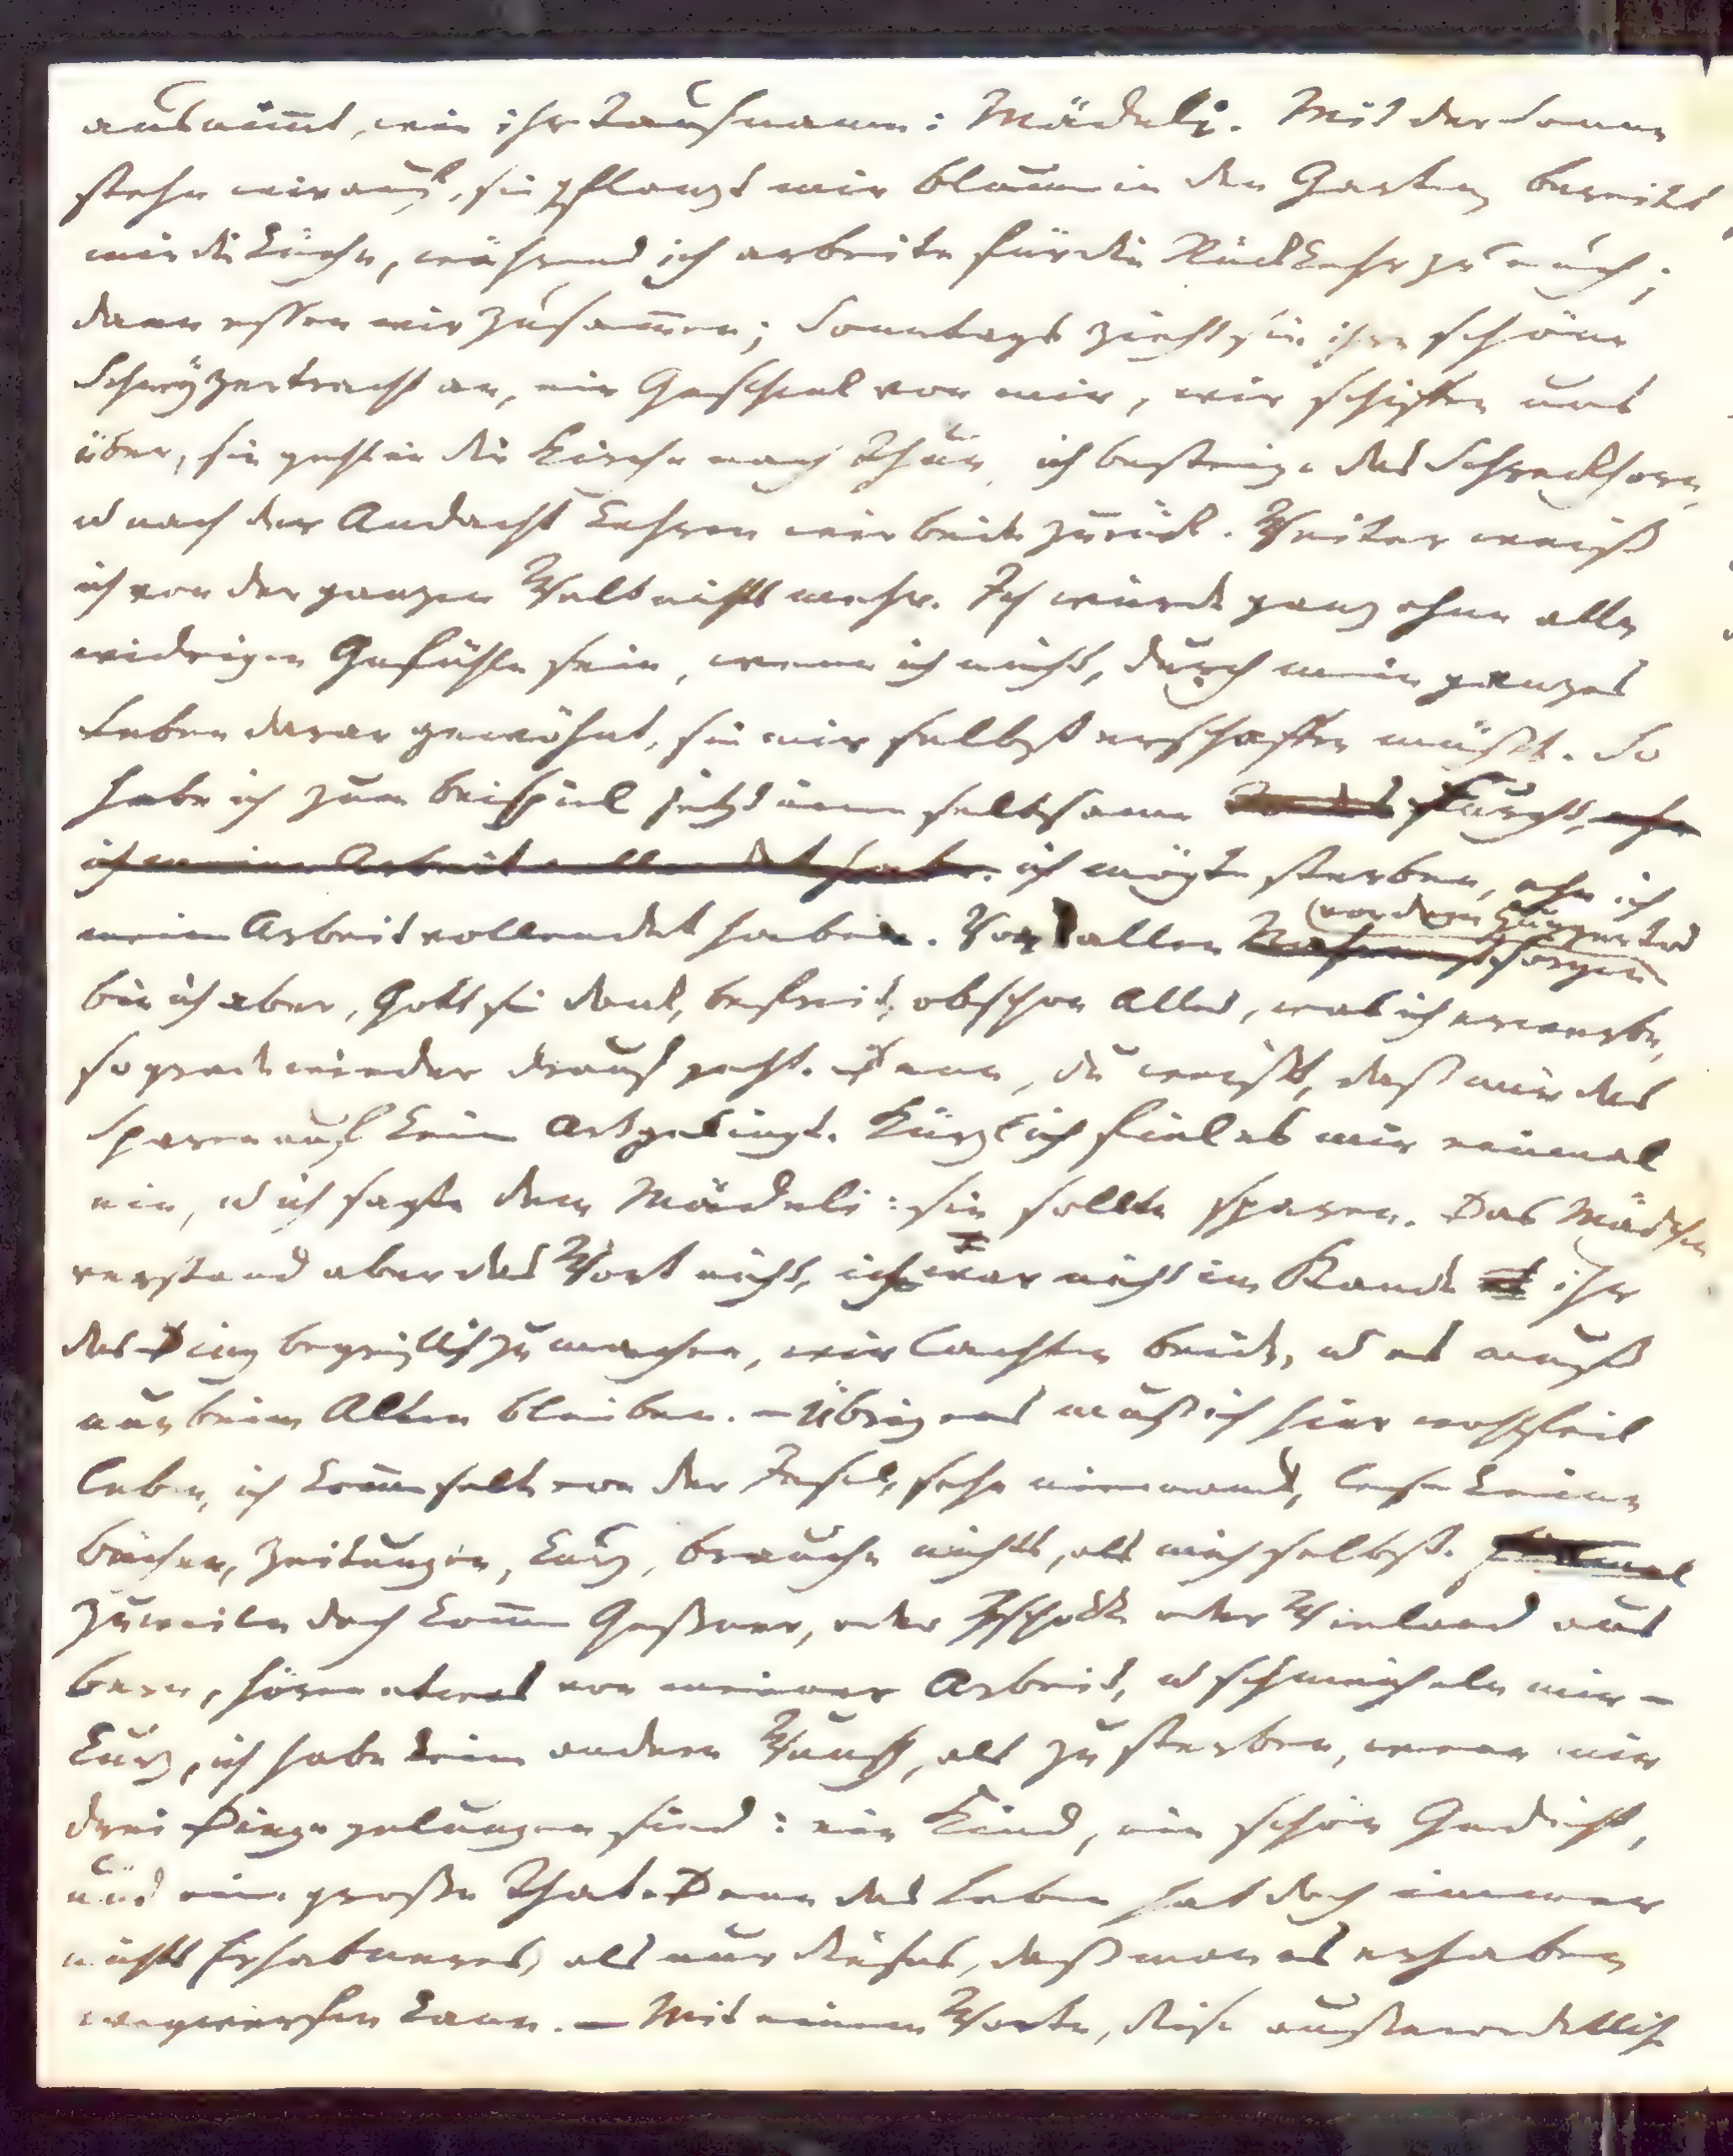 ausnimmt, wie ihr Taufname: Mädeli. Mit der Sonne
stehn wir auf, sie pflanzt mir Blumen in den Garten, bereitet
mir die Küche, während ich arbeite für die Rückkehr zu euch;
dann essen wir zusammen; Sonntags zieht sie ihre schöne
Schwyzertracht an, ein Geschenk von mir, wir schiffen uns
über, sie geht in die Kirche nach Thun, ich besteige das Schreckhorn,
u nach der Andacht kehren wir beide zurück. Weiter weiß
ich von der ganzen Welt nichts mehr. Ich würde ganz ohne alle
widrigen Gefühle sein, wenn ich nicht, durch mein ganzes
Leben daran gewöhnt, sie mir selbst erschaffen müßte. So
habe ich zum Beispiel jetzt eine seltsame Furcht, ehe
ich meine Arbeit vollendet habe. ich mögte sterben, ehe ich
meine Arbeit vollendet habe. Von allen Nahrungssorgen
(vor dem Hungertod
bin ich aber, Gott sei Dank, befreit, obschon Alles, was ich erwerbe,
so grade wieder drauf geht. Denn, du weißt, daß mir das
Sparen auf keine Art gelingt. Kürzlich fiel es mir einmal
ein, u ich sagte dem Mädeli: sie sollte sparen. Das Mädchen
verstand aber das Wort nicht, ich war nicht im Stande ihr
das Ding begreiflich zu machen, wir lachten beide, u es muß
nun beim Alten bleiben. – Übrigens muß ich hier wohlfeil
leben, ich komme selten von der Insel, sehe niemand, lese keine
Bücher, Zeitungen, kurz, brauche nichts, als mich selbst.
Zuweilen doch kommen Geßner, oder Zschokke oder Wieland aus
Bern, hören etwas von meiner Arbeit, u schmeicheln mir –
kurz, ich habe keinen andern Wunsch, als zu sterben, wenn mir
drei Dinge gelungen sind: ein Kind, ein schön Gedicht,
und eine große That. Denn das Leben hat doch immer
nichts Erhabneres, als nur dieses, daß man es erhaben
wegwerfen kann. – Mit einem Worte, diese außerordentliche